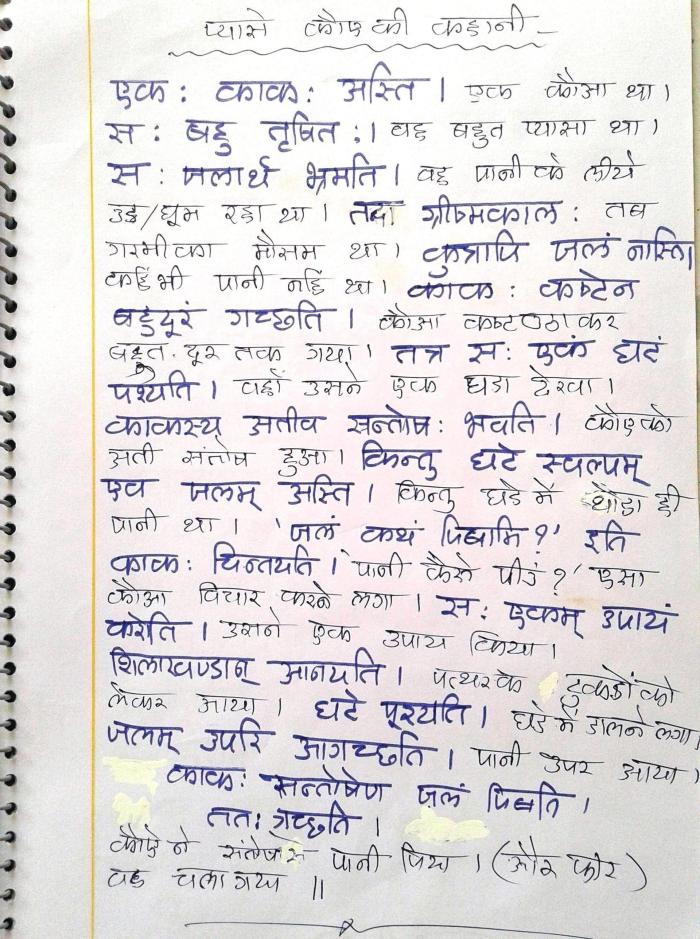 प्यासे कौए की कहानी -
एक: काक: अस्ति । एक कौआ था ।
स: बहु तृषित:। वह बहुत प्यासा था ।
स: जलार्थ भ्रमति । वह पानी के लीये
उड/घूम रहा था । तदा ग्रीष्मकाल: तब
गरमी का मौसम था । कुत्रापि जलं नास्ति।
कहिं भी पानी नहिं था । काक: कष्टेन
बहुदूरं गच्छति । कौआ कष्ट उठा कर
बहुत दूर तक गया । तत्र स: एकं घटं
पश्यति । वहाँ उसने एक घडा देखा ।
काकस्य अतीव सन्तोष: भवति । कौए को
अती संतोष हुआ । किन्तु घटे स्वल्पम्
एव जलम् अस्ति । किन्तु घडे में थोडा ही
पानी था । 'जलं कथं पिबामि ?' इति
काक: चिन्तयति । 'पानी कैसे पीउं ?' एसा
कौआ विचार करने लगा । स: एकम् उपायं
करेति । उसने एक उपाय किया ।
शिलाखण्डान् आनयति । पत्थर के टुकडों को
लेकर आया । घटे पूरयति । घडे में डालने लगा।
जलम् उपरि आगच्छति । पानी उपर आया ।
काक: सन्तोषेण जलं पिबति ।
तत: गच्छति ।
कौए ने संतोष से पानी पिया । (और फीर)
वह चला गया ॥